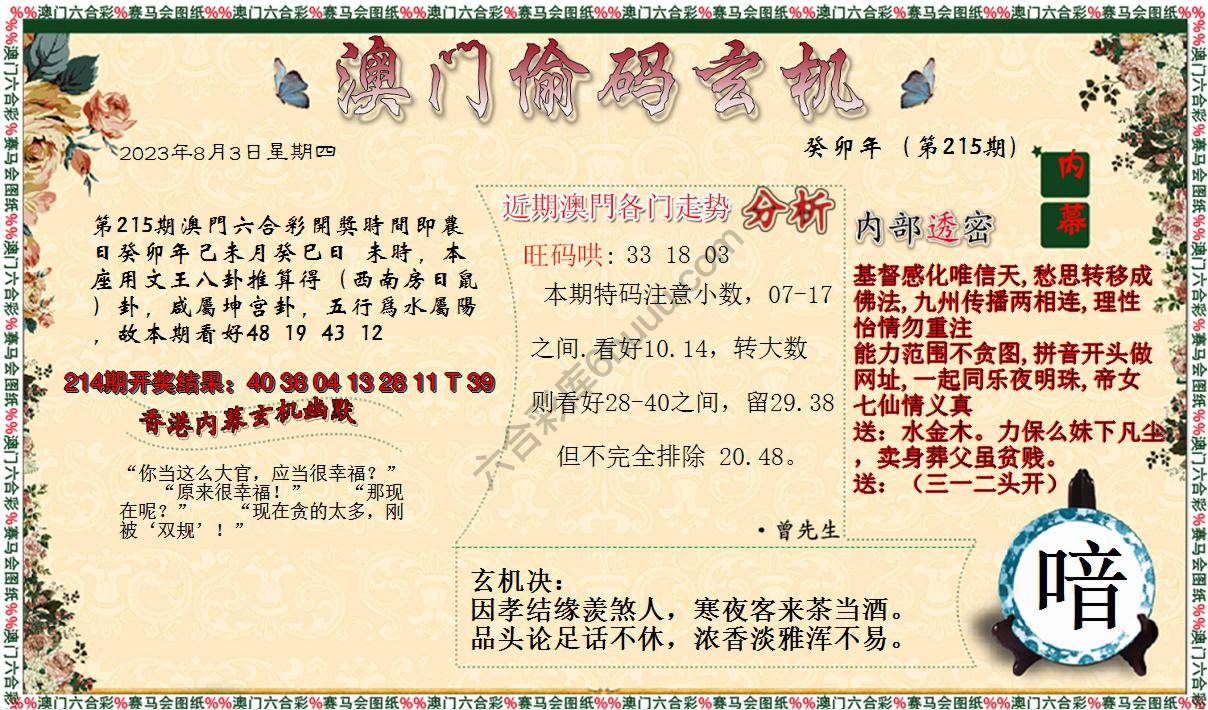 %%澳门六合彩%赛马会图纸%%澳门六合彩%赛马会图纸%%澳门六合彩%赛马会图纸%%澳门六合彩%赛马会图纸%%澳门六合彩%赛马会图纸%%澳门六合彩%赛马会图纸%%
澳门偷码玄机
2023年8月3日星期四
癸卯年（第215期）
内
幕
第215期澳門六合彩開獎時間即農
日癸卯年己未月癸巳日 未時，本
座用文王八卦推算得（西南房日鼠
）卦，咸屬坤宫卦，五行爲水屬陽
，故本期看好48 19 43 12
214期开奖结果：40 38 04 13 28 11 T 39
香港内幕玄机幽默
“你当这么大官，应当很幸福？”
“原来很幸福！” “那现
在呢？” “现在贪的太多，刚
被‘双规’！”
近期澳門各门走势 分析
旺码哄: 33 18 03
本期特码注意小数，07-17
之间.看好10.14，转大数
则看好28-40之间，留29.38
但不完全排除 20.48。
·曾先生
内部透密
基督感化唯信天,愁思转移成
佛法,九州传播两相连,理性
怡情勿重注
能力范围不贪图,拼音开头做
网址,一起同乐夜明珠,帝女
七仙情义真
送：水金木。力保么妹下凡尘
，卖身葬父虽贫贱。
送：（三一二头开）
玄机决：
因孝结缘羡煞人，寒夜客来茶当酒。
品头论足话不休，浓香淡雅浑不易。
喑
%%澳门六合彩%赛马会图纸%%澳门六合彩%赛马会图纸%%澳门六合彩%赛马会图纸%%澳门六合彩%赛马会图纸%%澳门六合彩%赛马会图纸%%澳门六合彩%赛马会图纸%%